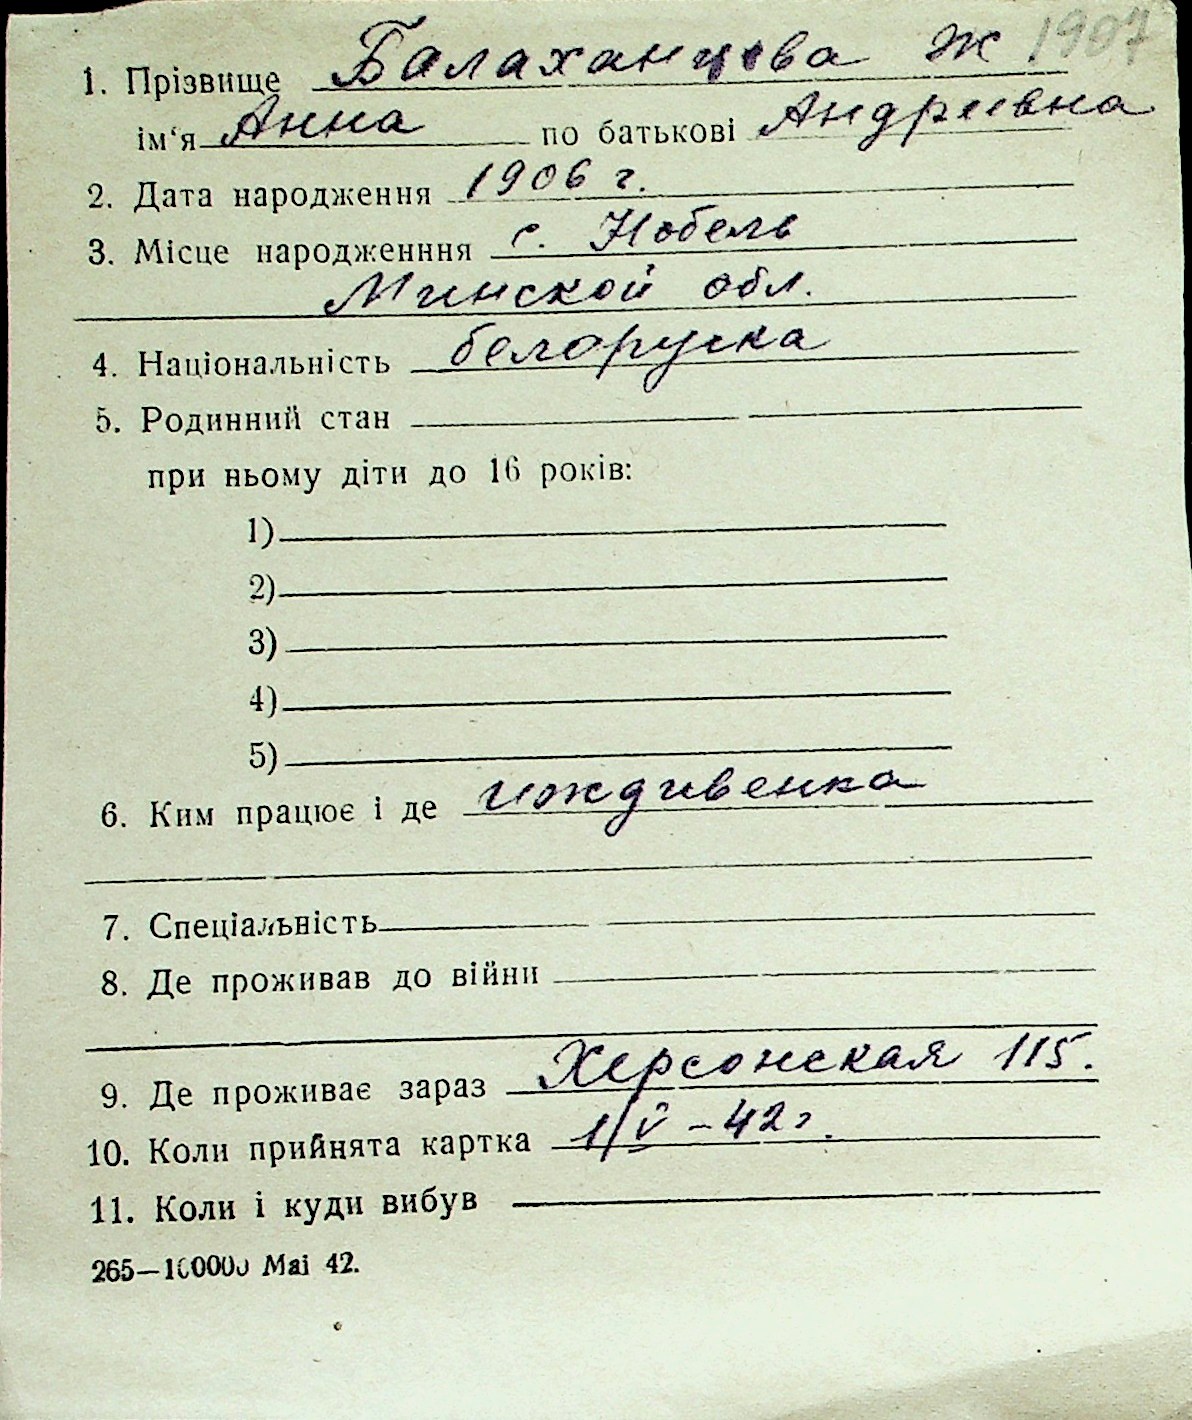 1. Прізвище Балаханцева Ж 1907
ім‘я Анна по батькові Андреевна
2. Дата народження 1906 г.
3. Місце народженння с. Нобель
Минской обл.
4. Національність белоруска
5. Родинний стан
при ньому діти до 16 років:
1)
2)
3)
4)
5)
6. Ким працює і де иждивенка
7. Спеціальність
8. Де проживав до війни
9. Де проживає зараз Херсонская 115.
10. Коли прийнята картка 1/V – 42 г.
11. Коли і куди вибув
265—100000 Mai 42.